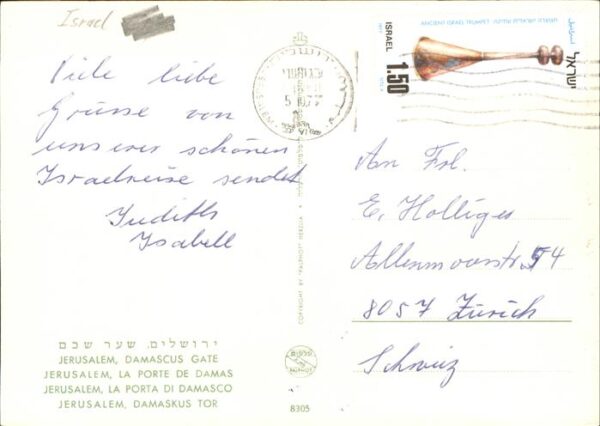 Israel
Viele liebe
Grüsse von
unserer schönen
Israelreise sendet
Judith
Isabell
ירושלים. שער שכם
JERUSALEM, DAMASCUS GATE
JERUSALEM, LA PORTE DE DAMAS
JERUSALEM, LA PORTA DI DAMASCO
JERUSALEM, DAMASKUS TOR
COPYRIGHT BY "PALPHOT" HERZLIA
8305
ANCIENT ISRAEL TRUMPET
ISRAEL
1.50
ישראל
An Frl.
E. Holliger
Allenmoosstr. 54
8057 Zürich
Schweiz